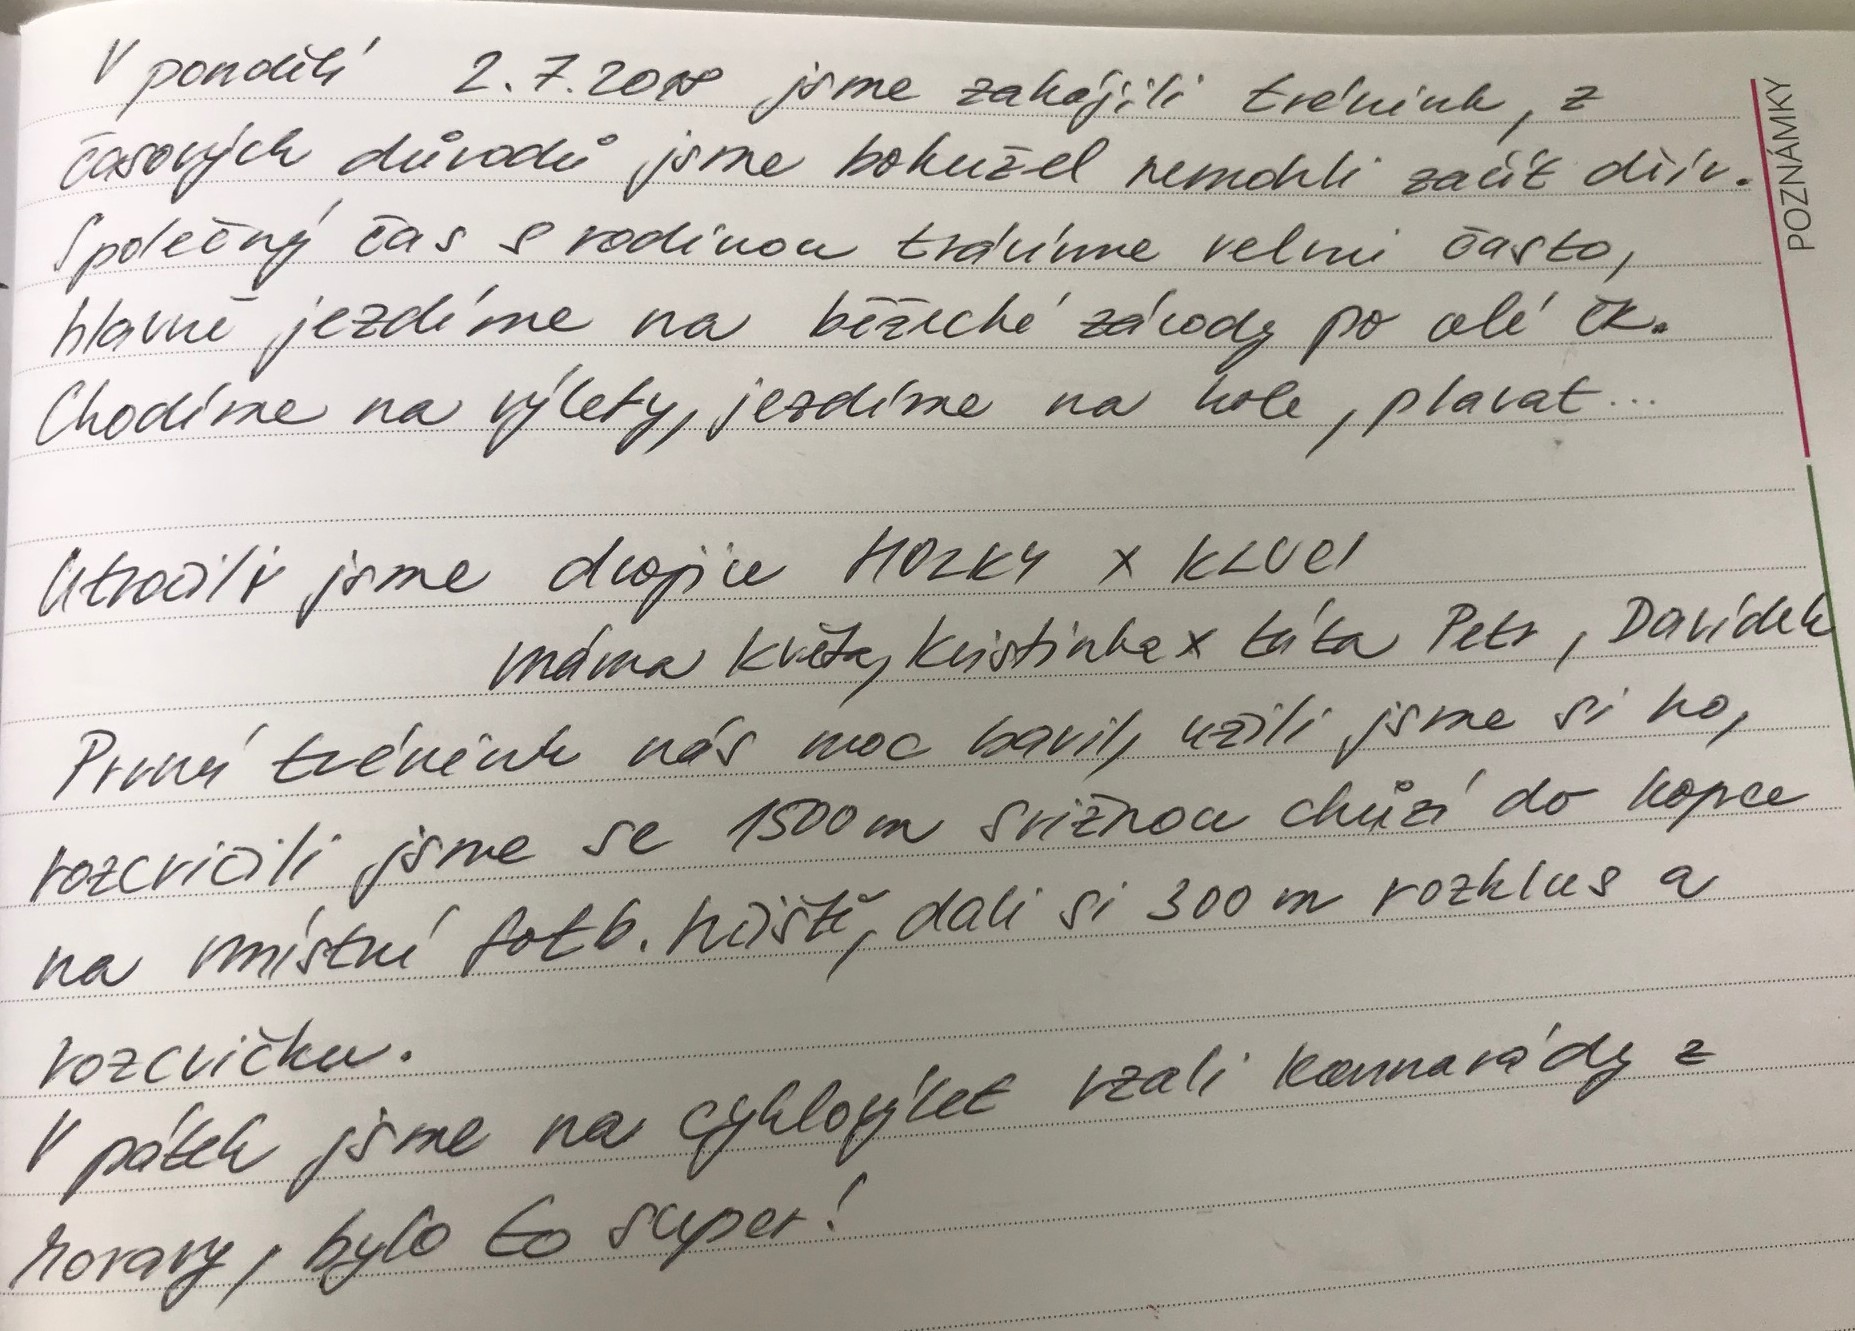 V pondělí 2.7.2018 jsme zahájili trénink, z
časových důvodů jsme bohužel nemohli začít dřív.
Společný čas s rodinou trávíme velmi často,
hlavně jezdíme na běžecké závody po celé ČR.
Chodíme na výlety, jezdíme na kole, plavat...
Utvořili jsme dvojice HOLKY x KLUCI
máma Květa, Kristinka x táta Petr, Davídek
První trénink nás moc bavil, užili jsme si ho,
rozcvičili jsme se 1500 m svižnou chůzí do kopce
na místní fotb. hřiště, dali si 300 m rozklus a
rozcvičku.
V pátek jsme na cyklovýlet vzali kamarády z
Moravy, bylo to super!
POZNÁMKY